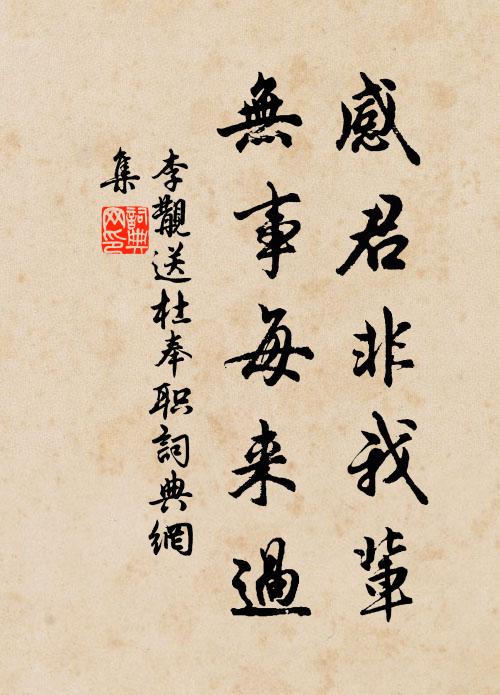 感君非我輩
無事每来過
李覯送杜奉职詞典網
集
詞典
网印